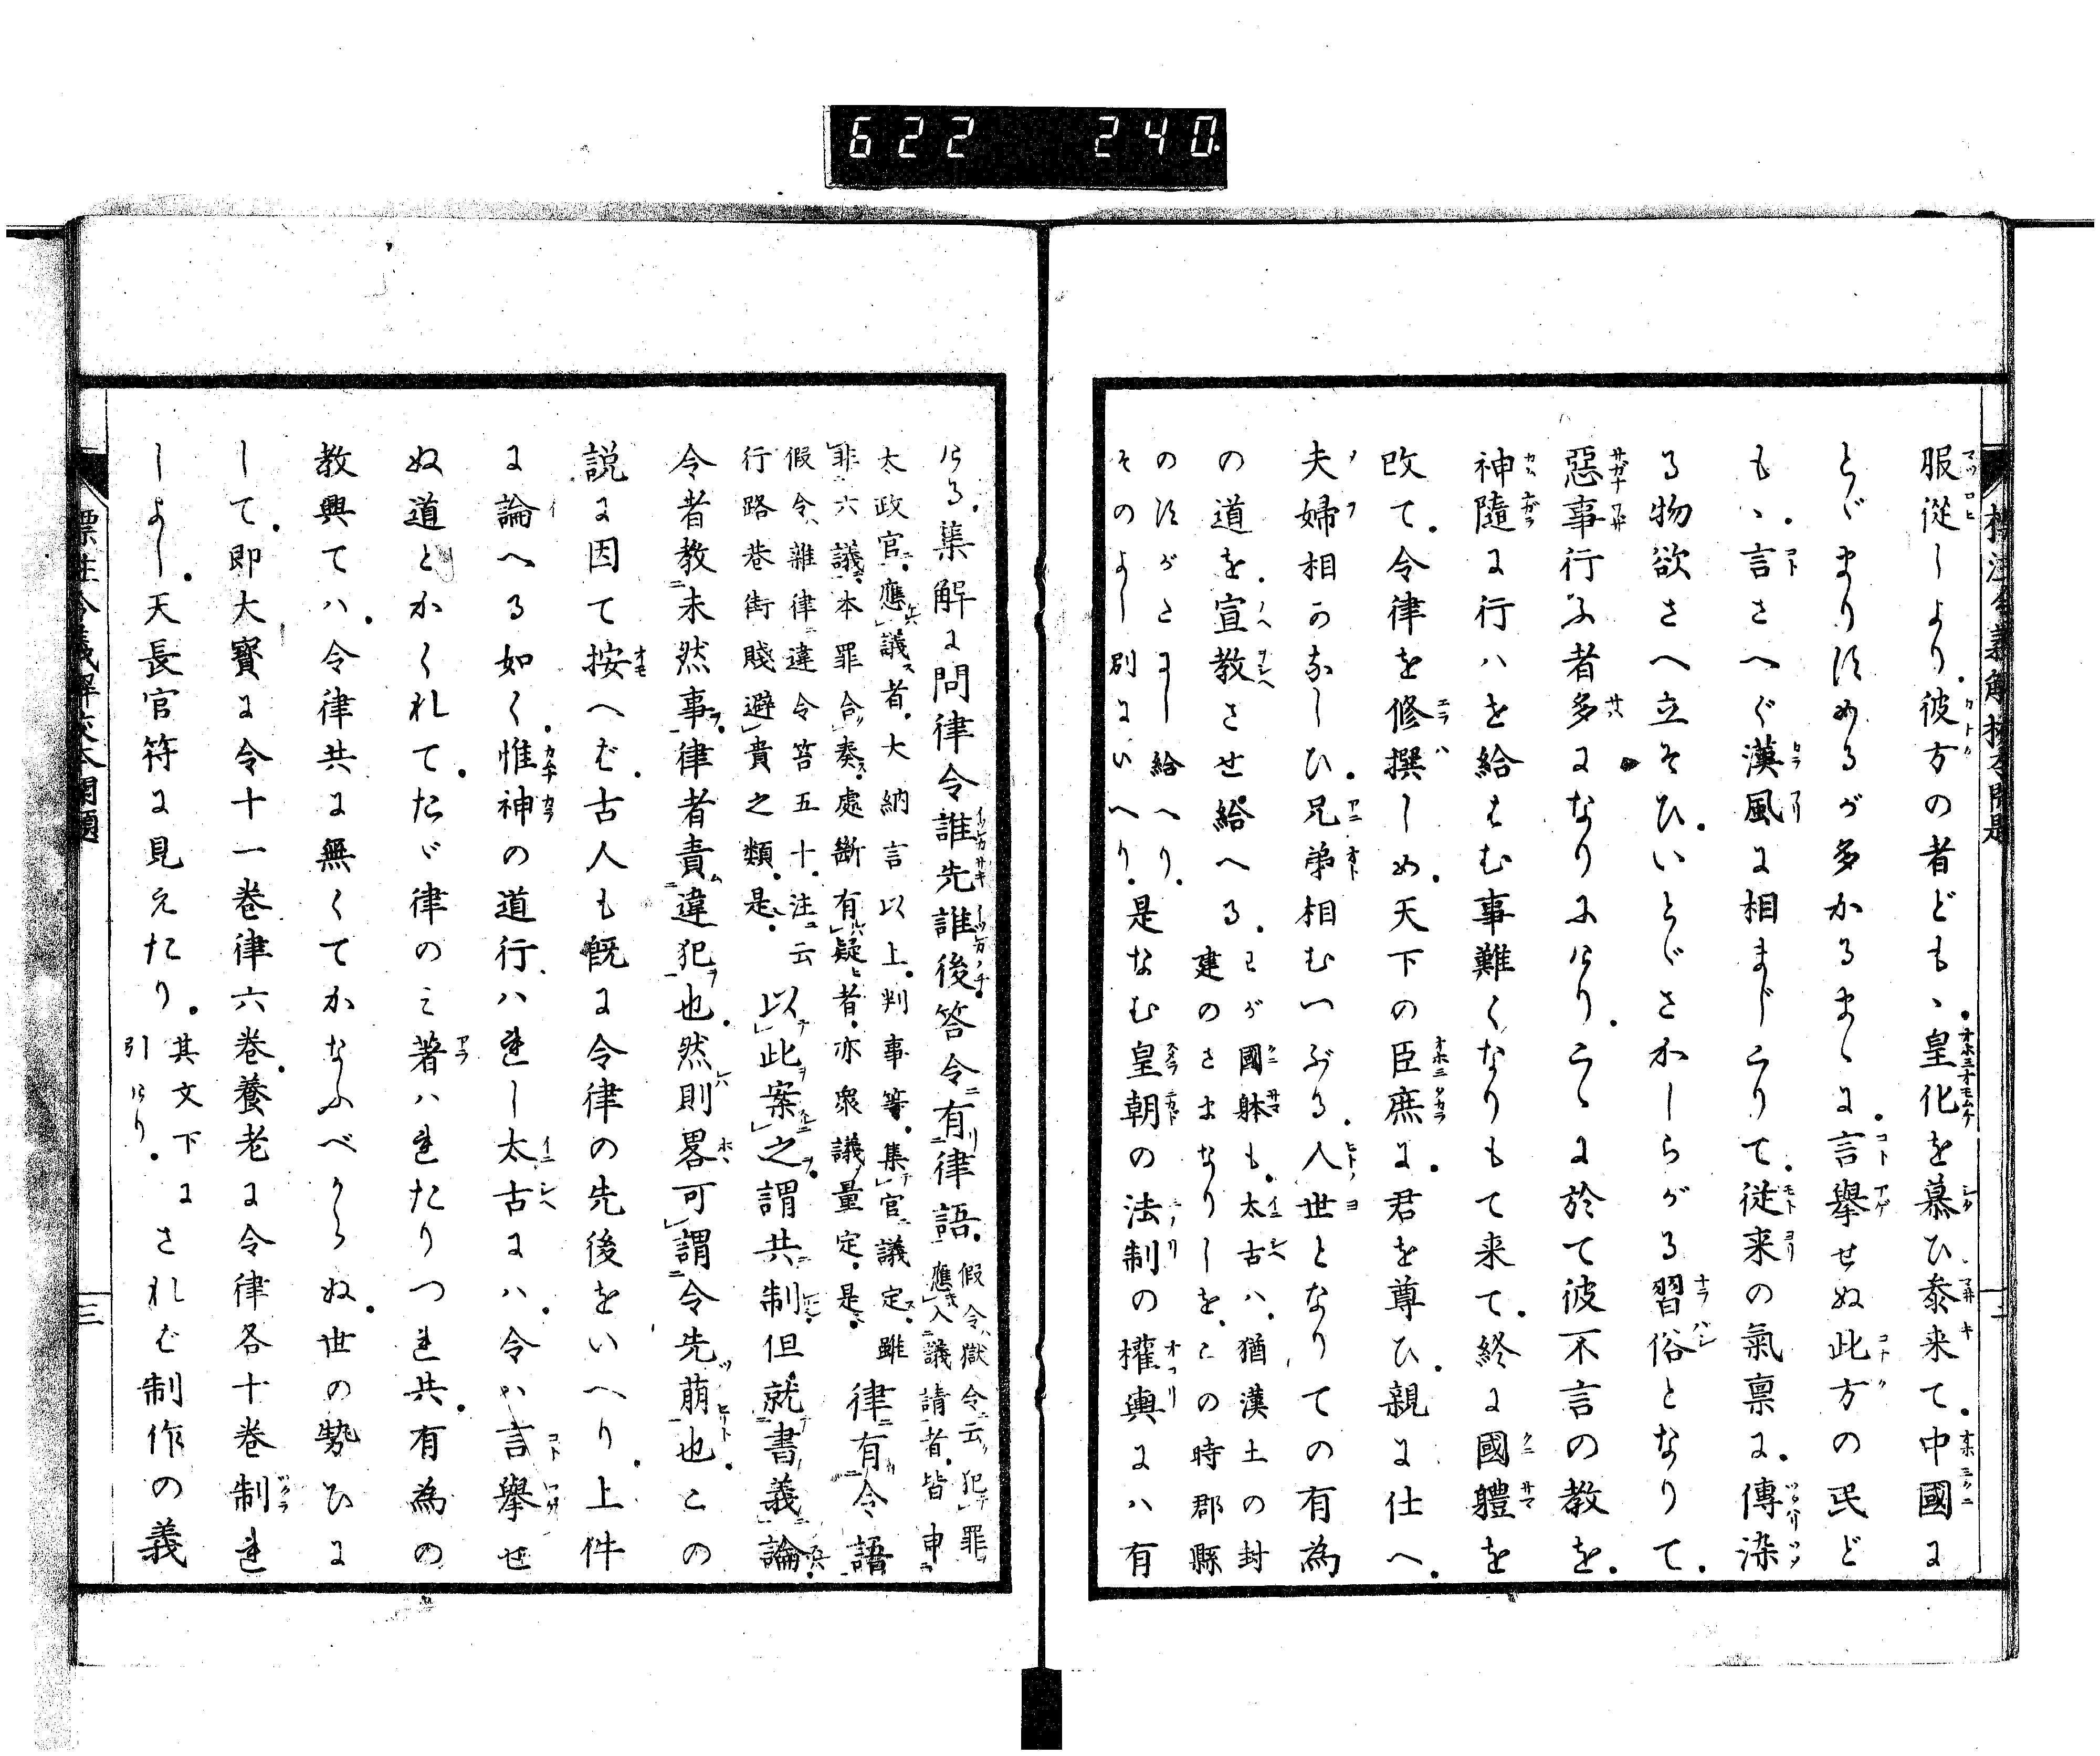 622 240
服從しより彼方の者ども、皇化を慕ひ泰来て中國に
とゞまり住めるが多かるまゝに言擧せぬ此方の民ど
も、言さへぐ漢風に相まじこりて従来の氣禀に傳染
る物欲さへ立そひいとゞさかしらがる習俗となりて
惡事行ふ者多になりにけりこゝに於て彼不言の教を
神隨に行ハを給はむ事難くなりもて来て終に國體を
改て令律を修撰しめ天下の臣庶に君を尊ひ親に仕へ
夫婦相のなしひ兄弟相むつぶる人世となりての有為
の道を宣教させ給へる
わが國躰も太古ハ猶漢土の封
建のさまなりしをこの時郡縣
のすがたにし給へり
そのよし別にいへり
是なむ皇朝の法制の權輿にハ有
ける集解に問律令誰先誰後答令有律語
假令獄令云犯罪
應入議請者皆申
太政官應議者大納言以上判事等集官議定雖
非六議本罪合奏處斷有疑者亦衆議量定是
律有令語
假令雜律違令笞五十注云
行路巷街賤避貴之類是
以此案之謂共制但就書義論
令者教未然事律者責違犯也然則畧可謂令先萠也この
説に因て按へば古人も既に令律の先後をいへり上件
に論へる如く惟神の道行ハれし太古にハ令ハ言擧せ
ぬ道とかくれてたゞ律のミ著ハれたりつれ共有為の
教興てハ令律共に無くてかなふべからぬ世の勢ひに
して即大寳に令十一巻律六巻養老に令律各十巻制れ
しよし天長官符に見えたり
其文下に
引けり
されば制作の義
標注令義解校本開題
三